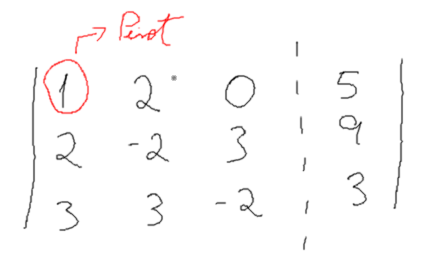 Pivot
1 2 0 5
2 -2 3 9
3 3 -2 3